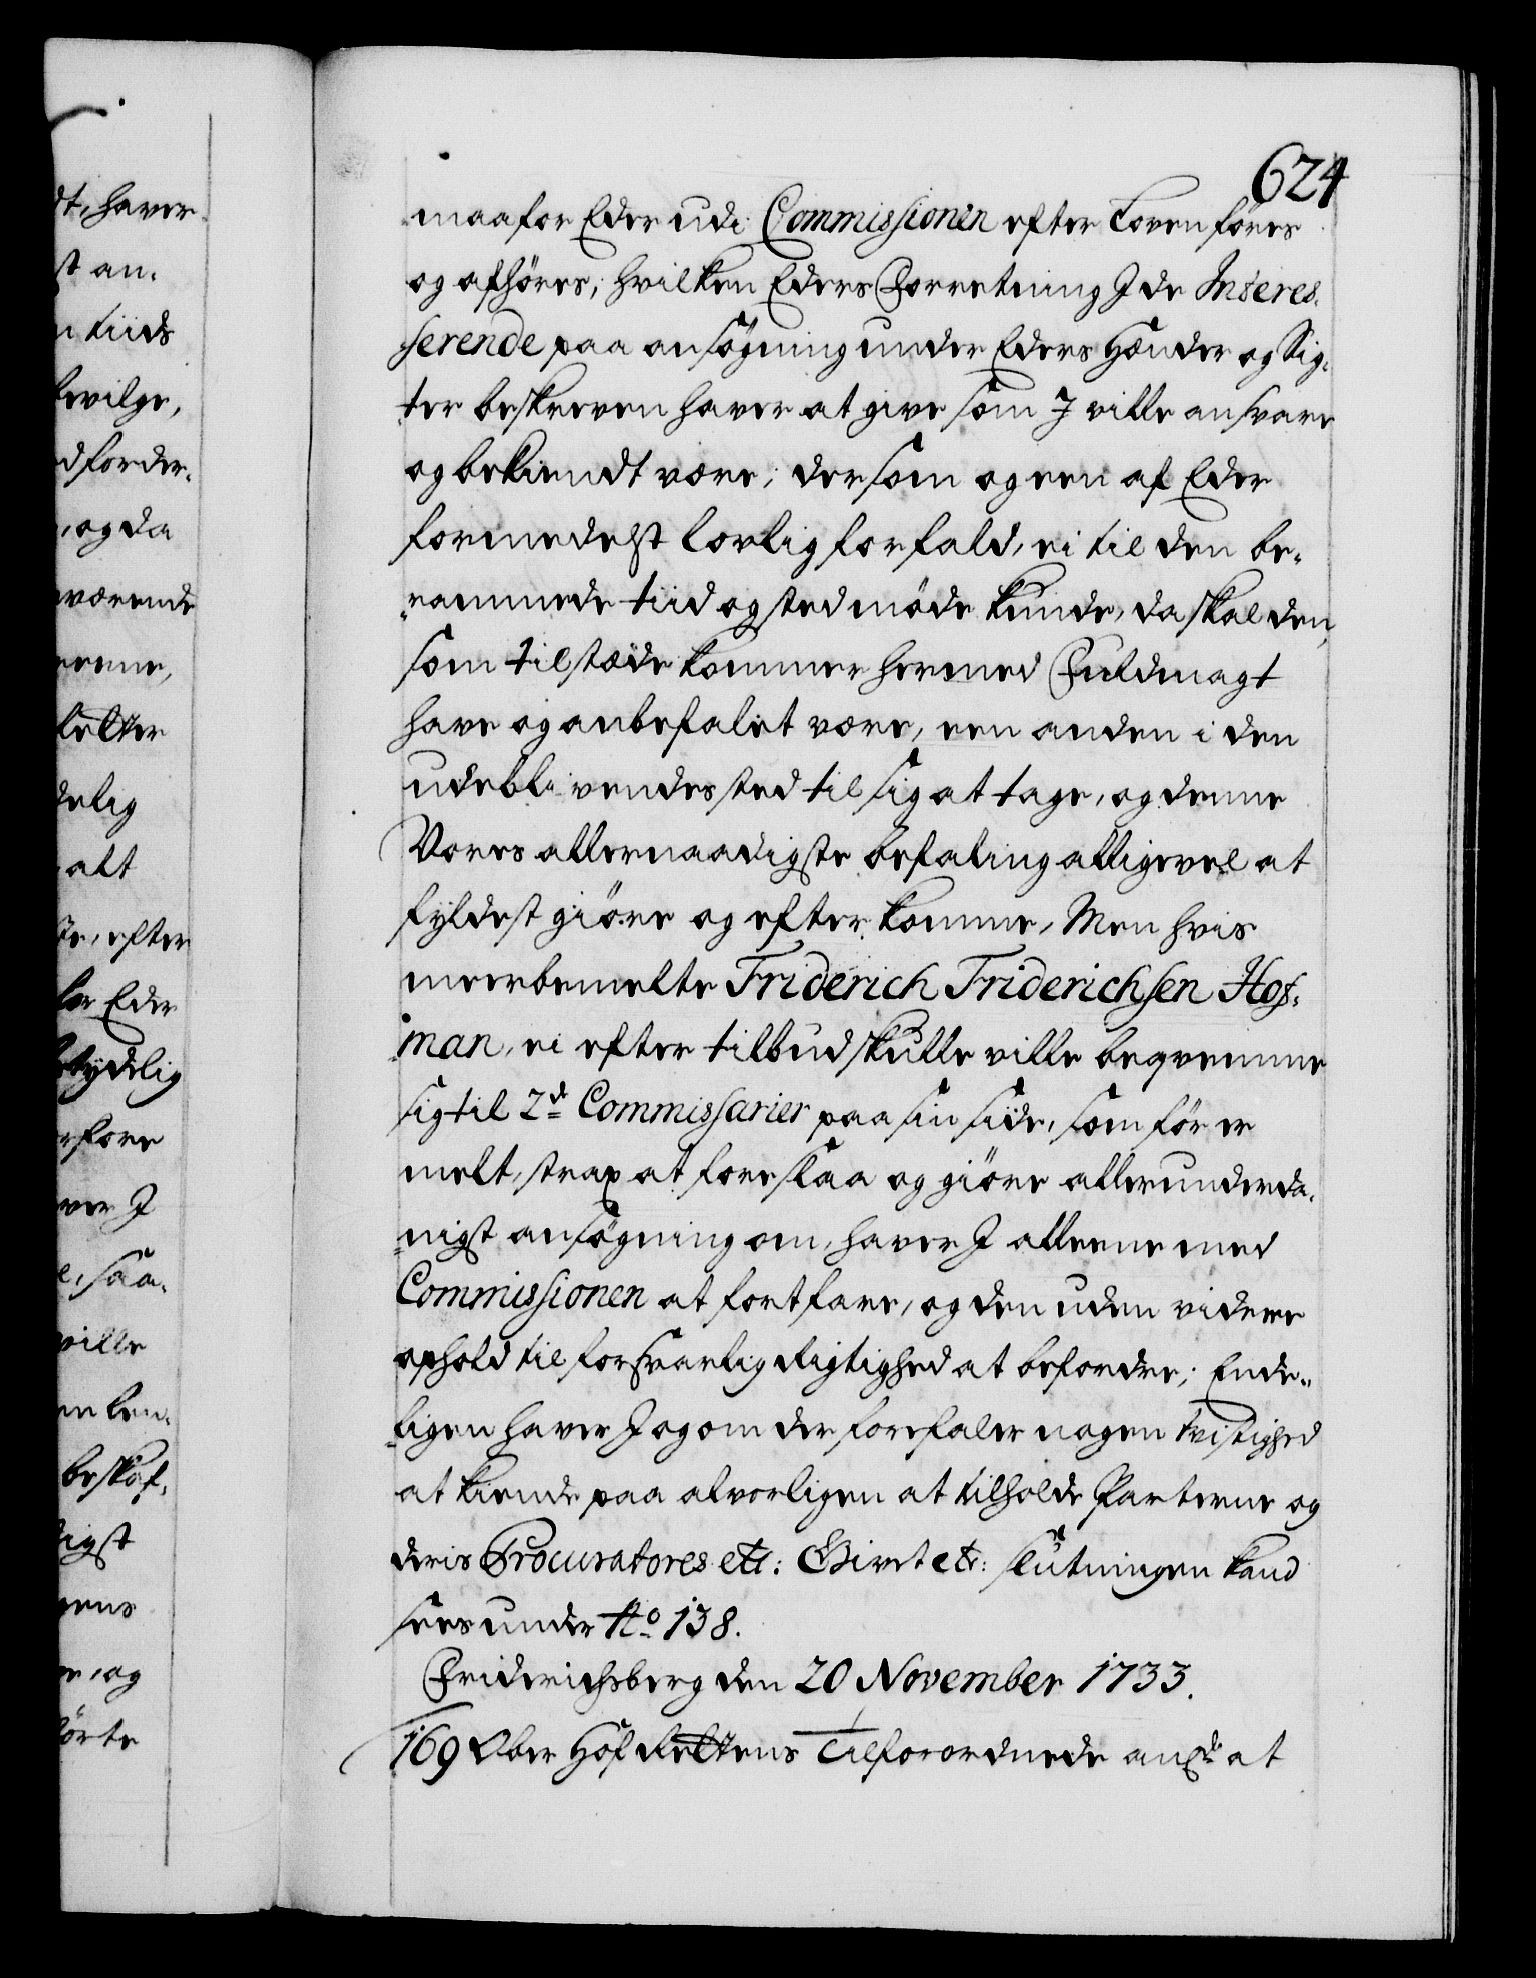 624
maa for Eder udi Commissionen efter Loven föres
og afhöres, hvilken Eders Forretning I de Interes-
serende paa ansögning under Eders Hænder og Sig-
ter beskreven haver at give som I ville ansvare
og bekiendt være; dersom og een af Eder
formedelst lovlig forfald, ei til den be-
rammede tiid og sted møde kunde, da skal den,
som tilstæde kommer hermed Fuldmagt
have og anbefalet være, een anden i den
udeblivendes sted til sig at tage, og denne
Vores allernaadigste befaling alligevel at
fyldest giöre og efterkomme, Men hvis
meerbemelte Friderich Friderichsen Hof-
man, ei efter tilbud skulle ville beqvemme
sig til 2de Commissarier paa sin side, som för er
melt, strax at foreslaa og giöre allerunderda-
nigst ansögning om, haver I alleene med
Commissionen at fortfare, og den uden videre
ophold til forsvarlig Rigtighed at befordre; Ende-
ligen haver I og om der forefaler nogen tvistighed
at kiende paa alvorligen at tilholde Parterne og
deris Procuratores etc: Givet etc: slutningen kand
sees under No 138.
Friderichsberg den 20 November 1733.
169 Ober Hof Rettens Tilforordnede anlde at
dt, haver
st an-
n tiids
bevilge,
dforder-
, og da
værende
eene,
Retter
delig
alt
te, efter
for Eder
tydelig
rfore
ver I
e, saa-
ville
en len-
beskaf-
digst
gens
e, og
förte